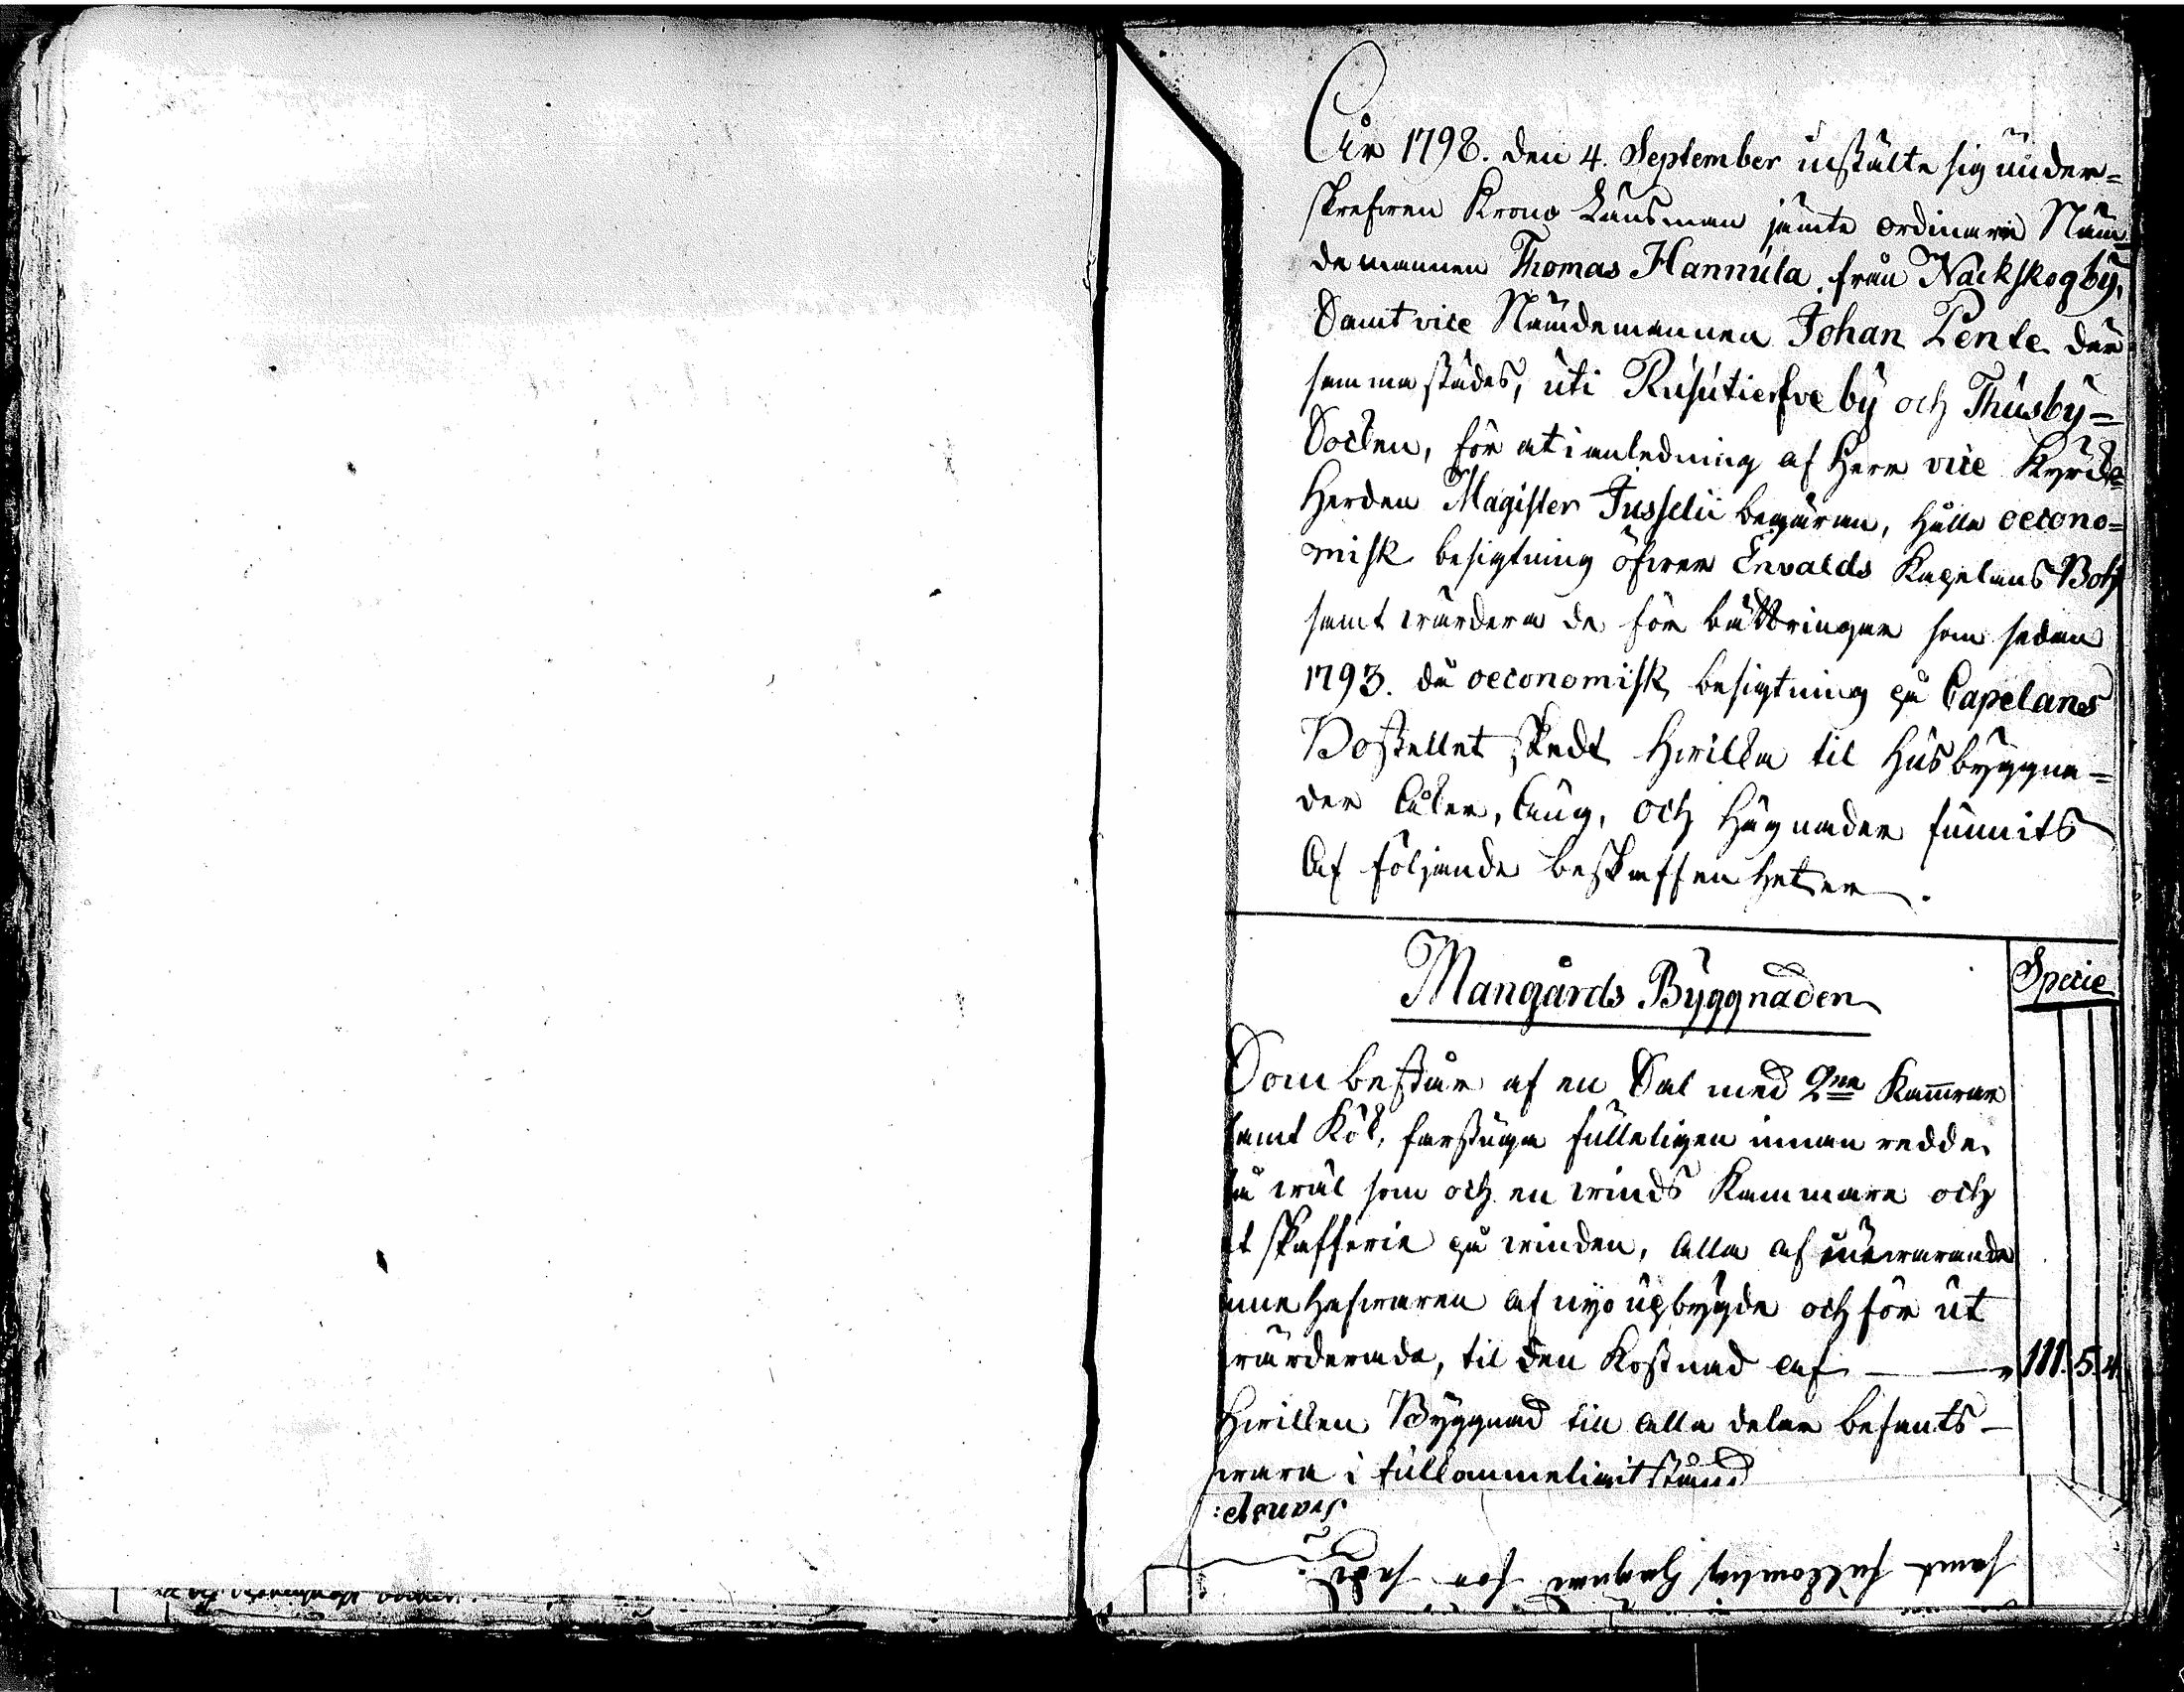 År 1798. den 4. September instälte sig under=
skrefwen Krono Länsman jämte ordinarie Näm=
demannen Thomas Hannula. från Nackskog by,
Samt vice Nämdemannen Johan Pente där
samma städes, uti Rusutierfve by och Thusby=
Socken, för at i anledning af Herr vice Kyrck=
Herden Magister Jusselii begäran, hålla oecono=
misk besigtning öfwer Envalds Kapelans Bohl
samt wärdera de förbättringar som sedan
1793. då oeconomisk besigtning på Capelans
Bostellet skedt hwilka til Husbyggna=
der Åker, Äng, och Hägnader funnits
Af följande beskaffenheter.
Mangårds Byggnaden
Specie
Som består af en Sal med 2ne Kamrar
samt Kök, farstuga fulleligen innan redde,
så wäl som och en winds Kammare och
et skafferie på winden, alla af nuwarande
innehafwaren af nyo upbygde och för ut
wärderade, til den Kostnad af — — „ 111. 5. 4.
Hwilken Byggnad till alla delar befants —
wara i fullommeligit stånd
samt fullkomlig